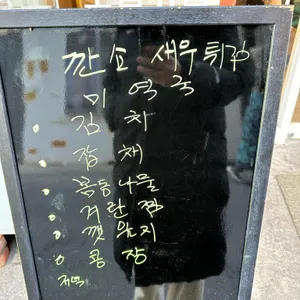 깐쇼 새우튀김
미역국
김치
잡채
봄동나물
계란찜
깻잎지
콩장
저녁